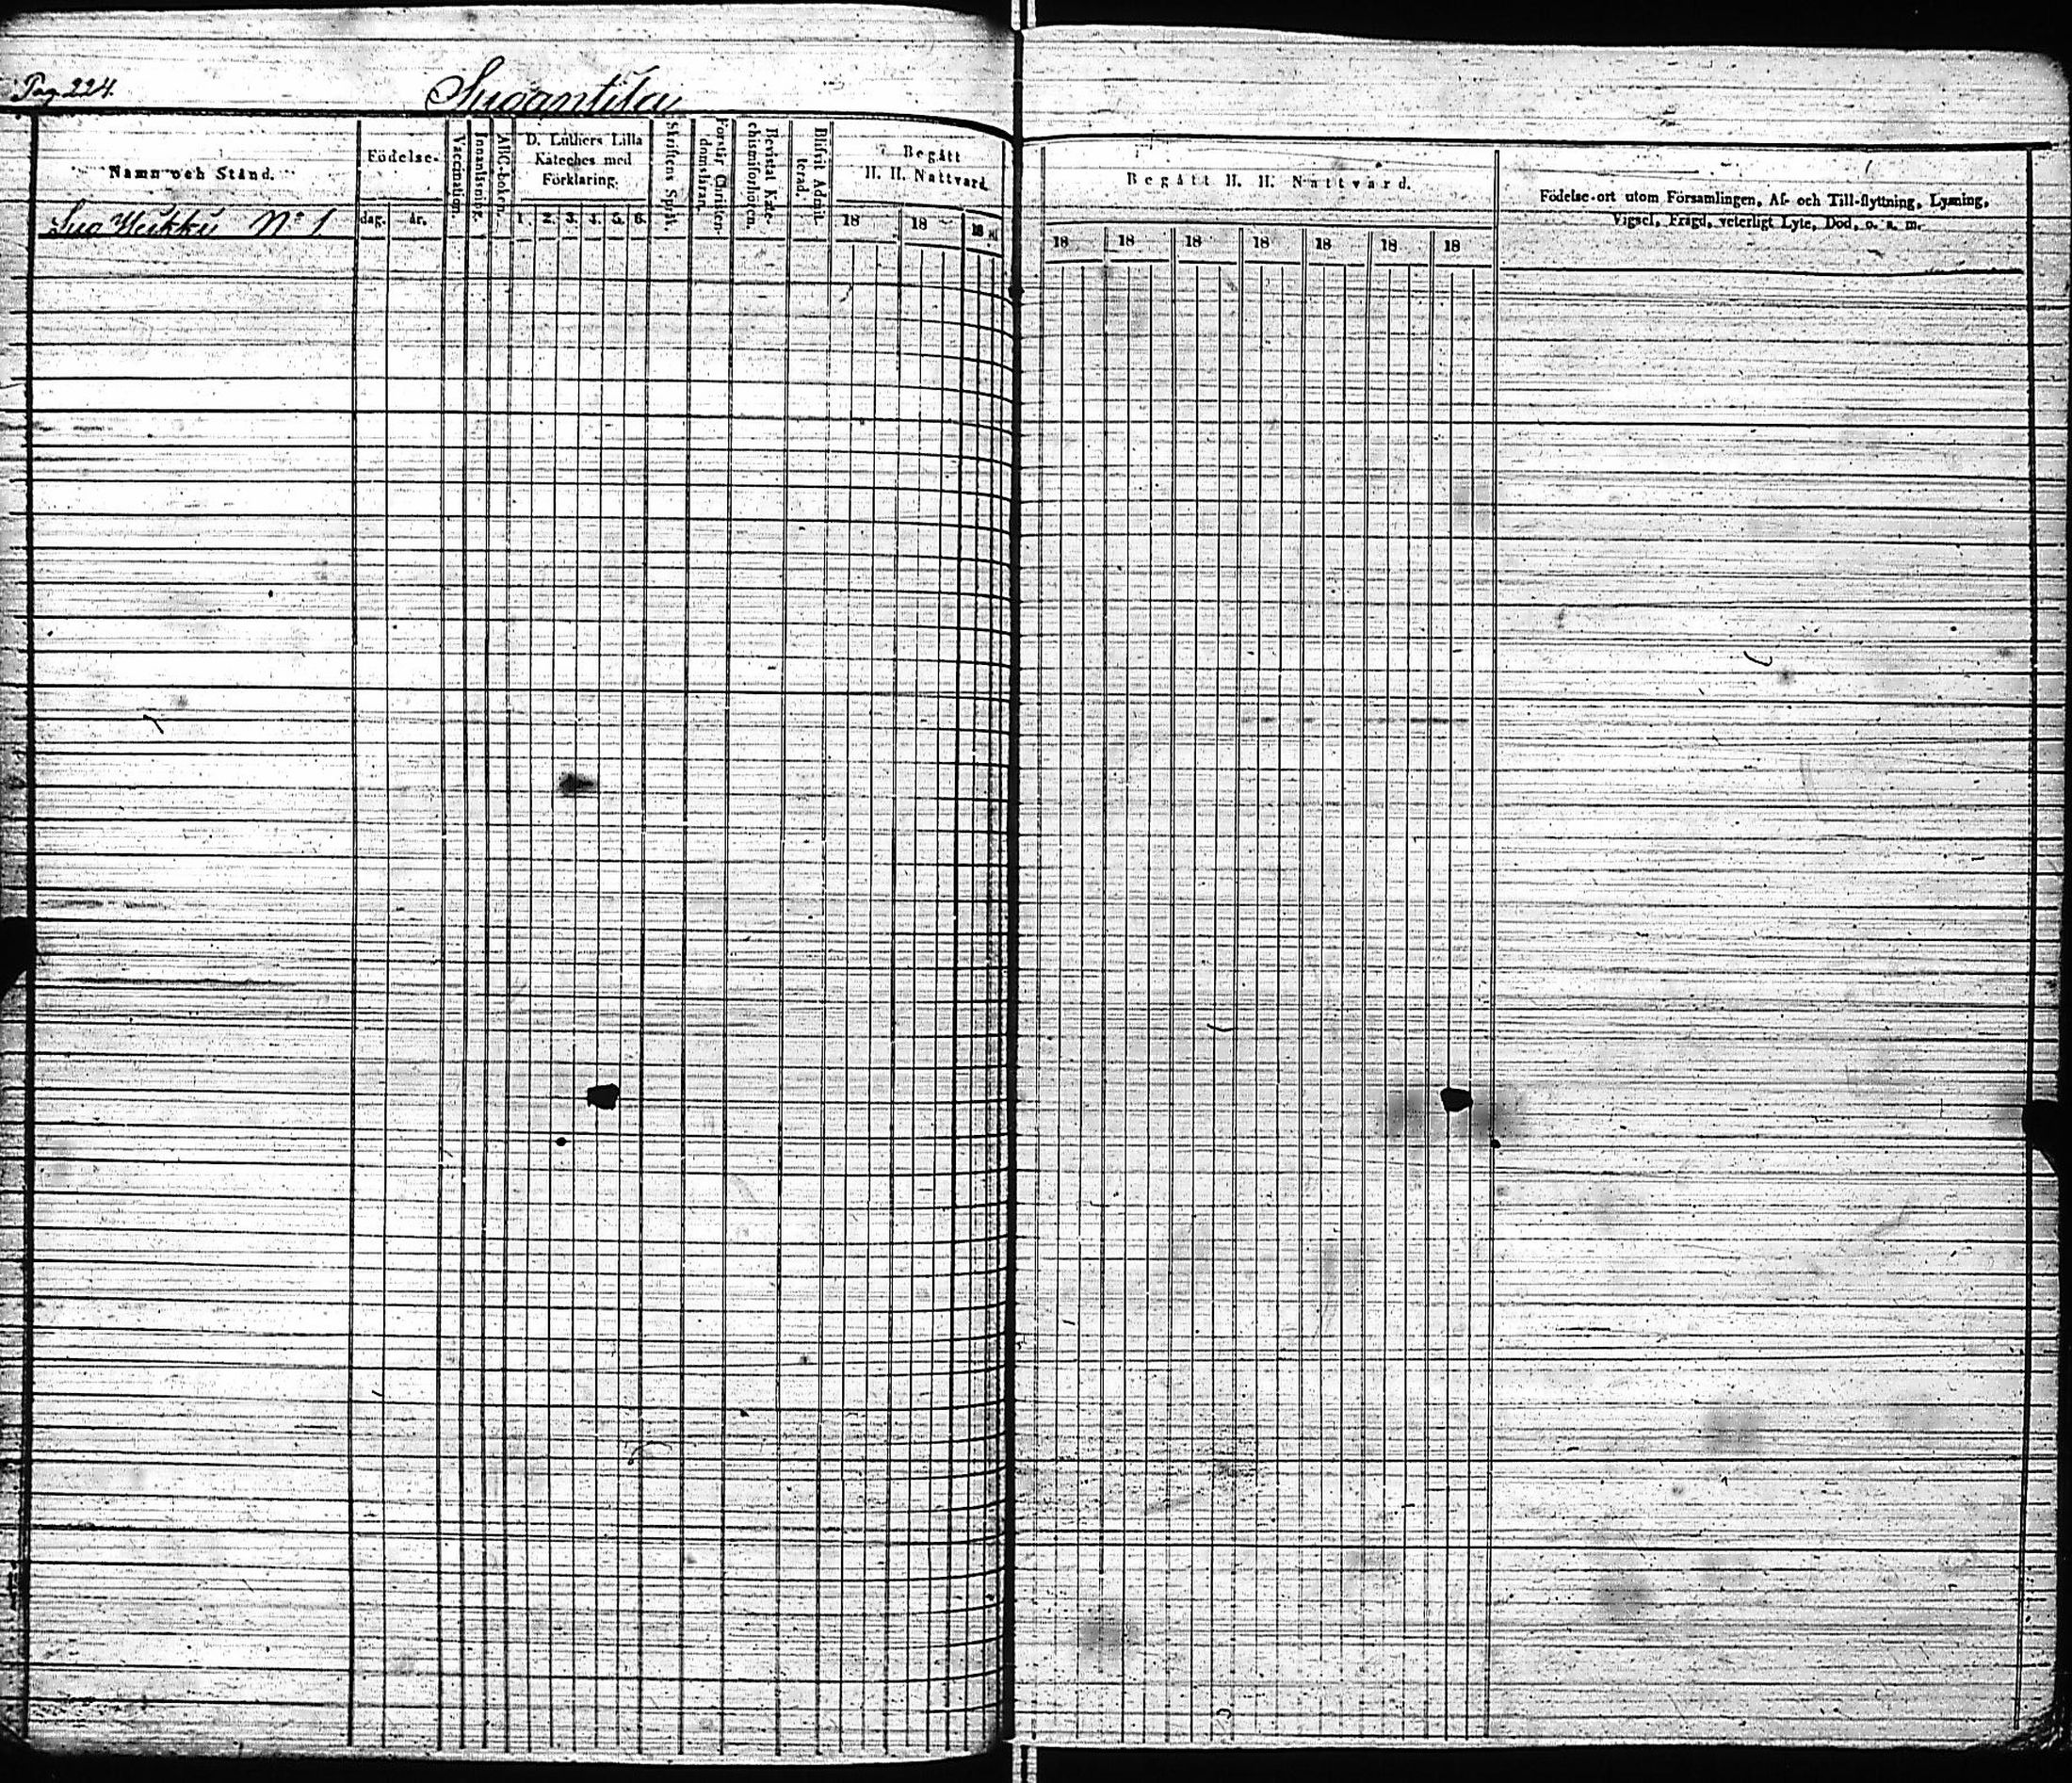 Pag. 224.
Suoantila
Namn och Stånd.
Födelse-
dag. år.
Vaccination.
Innanläsning.
ABC-boken.
D. Luthers Lilla
Kateches med
Förklaring.
1. 2. 3. 4. 5. 6.
Skriftens Språk.
Förstår Christen-
domsläran.
Bevistat Kate-
chismiförhören.
Blifvit Admit-
terad.
Begått
H. H. Nattvard.
18 18 18
Suo Heikku No 1
Begått H. H. Nattvard.
18 18 18 18 18 18 18
Födelse-ort utom Församlingen, Af- och Till-flyttning, Lysning,
Vigsel, Frägd, veterligt Lyte, Död, o. s. m.